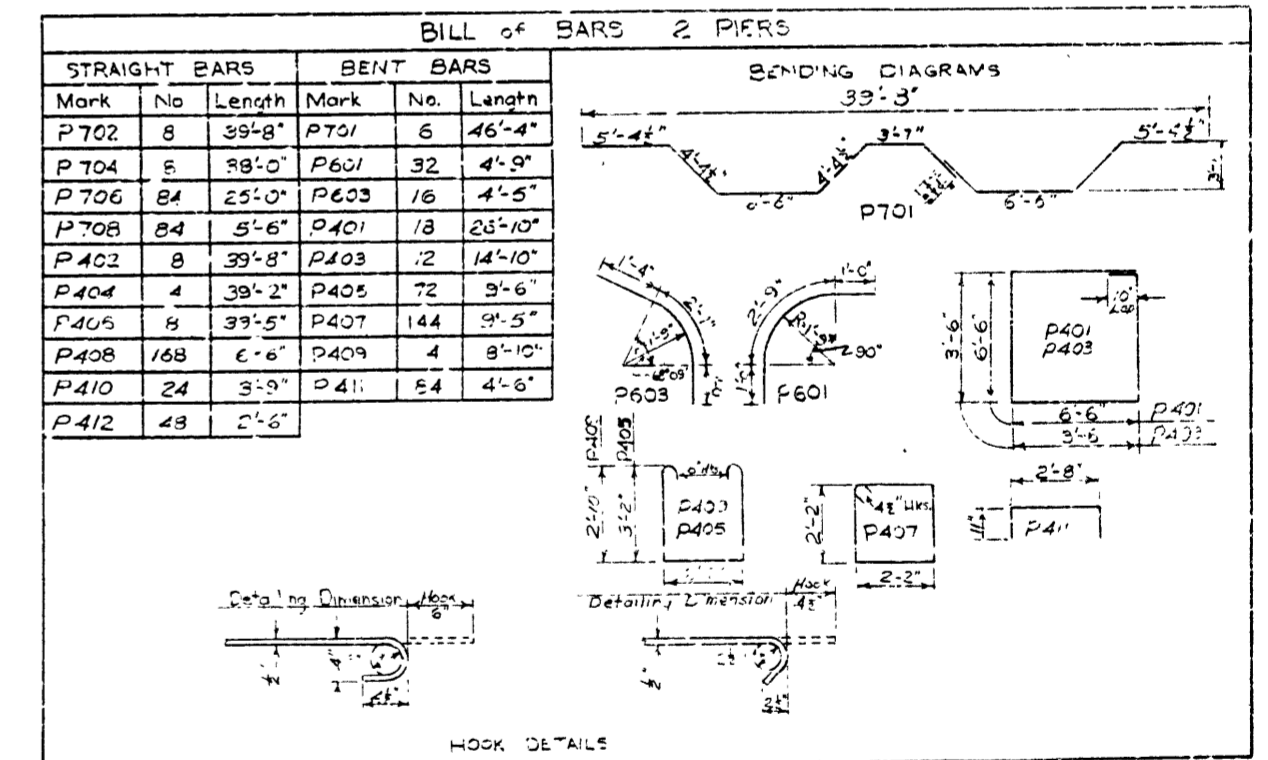 BILL of BARS 2 PIERS
STRAIGHT BARS BENT BARS
Mark No Length Mark No. Length
P702 8 39'-8" P701 6 46'-4"
P704 8 38'-0" P601 32 4'-9"
P706 84 25'-0" P603 16 4'-5"
P708 84 5'-6" P401 18 26'-10"
P402 8 39'-8" P403 12 14'-10"
P404 4 39'-2" P405 72 9'-6"
P406 8 39'-5" P407 144 9'-5"
P408 168 6'-6" P409 4 8'-10"
P410 24 3'-9" P411 84 4'-6"
P412 48 2'-6"
BENDING DIAGRAMS
39'-8"
5'-4½" 3'-7" 5'-4½"
4'-4½" 4'-4½"
6'-6" 6'-6"
P701
1'-4" 2'-1" 2'-9" 1'-0"
1'-9" 90°
P603 P601
3'-6" 6'-6" P401 10"
P403 Lap
6'-6" P401
3'-6 P403
P409 P405
2'-10" 3'-2" P409
P405
2'-2" 4½" Hks.
P407
2-2"
2'-8"
11" P411
Detailing Dimension Hook
6"
½" 4"
Detailing Dimension Hook
4½"
½" 2½"
HOOK DETAILS